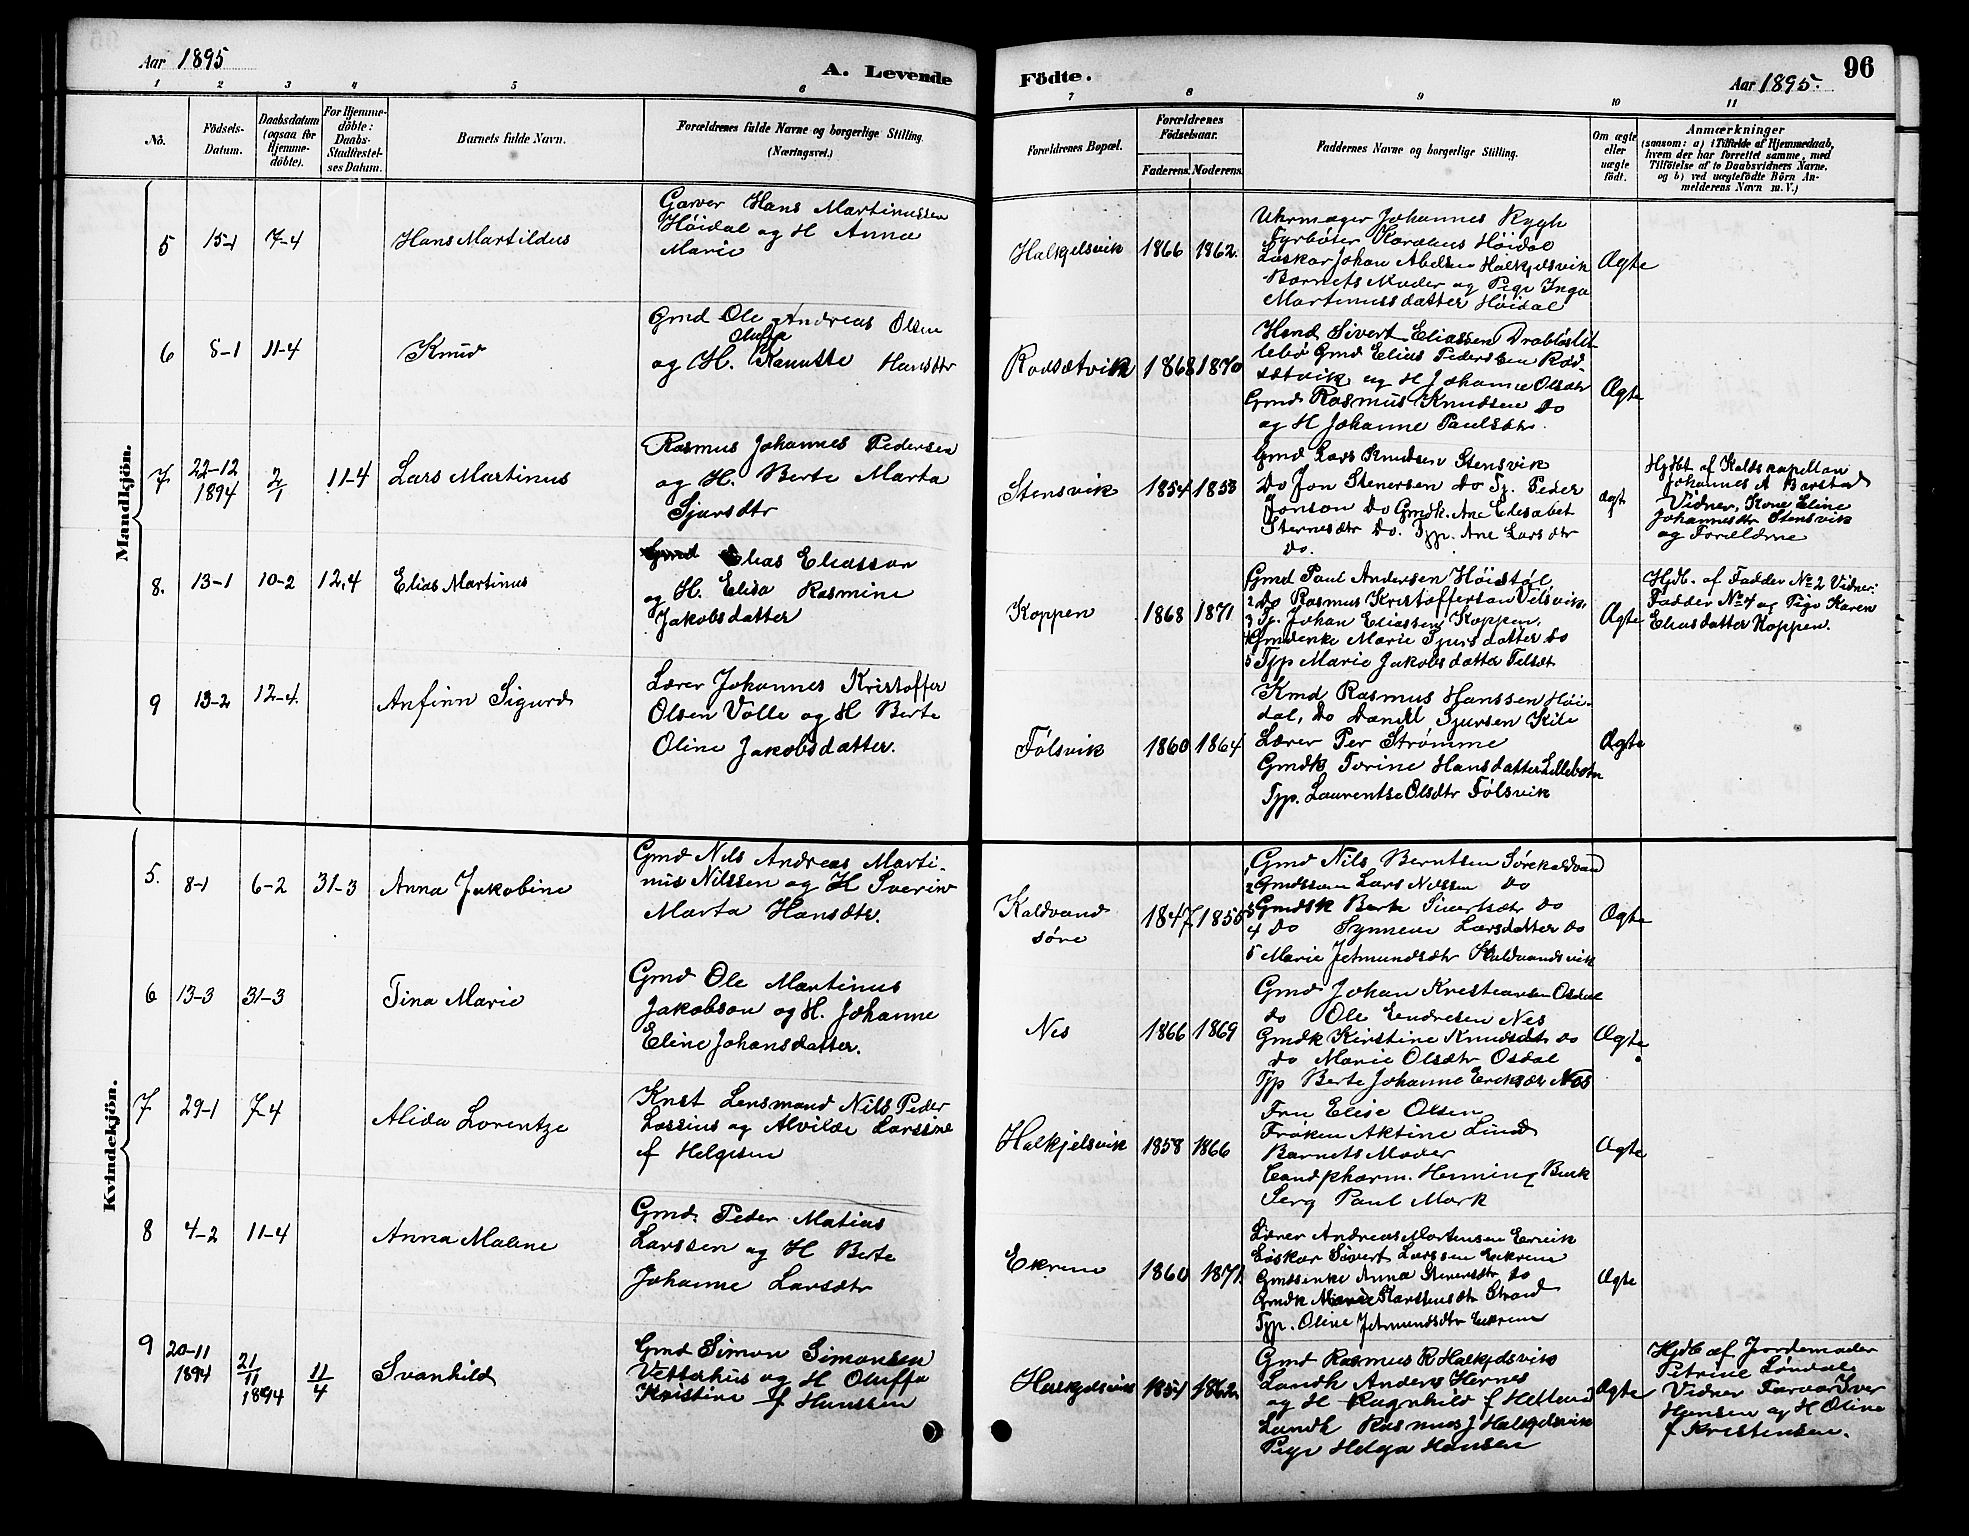 Aar 1895
A. Levende
Födte.
Aar 1895.
96
1 2 3 4 5 6 7 8 9 10 11
No.
Födsels-
Datum.
Daabsdatum
(ogsaa for
Hjemme-
döbte).
For Hjemme-
döbte:
Daabs-
Stadfæstel-
ses Datum.
Barnets fulde Navn.
Forældrenes fulde Navne og borgerlige Stilling.
(Næringsvei.)
Forældrenes Bopæl.
Forældrenes
Födselsaar.
Faderens. Moderens.
Faddernes Navne og borgerlige Stilling.
Om ægte
eller
uægte
födt.
Anmærkninger
(saasom: a) i Tilfælde af Hjemmedaab,
hvem der har forrettet samme, med
Tilföielse af to Daabsvidners Navne,
og b) ved uægtefödte Börn An-
melderens Navn m. V.)
Mandkjön.
5 15-1 7-4 Hans Martildus
Garver Hans Martinussen
Höidal og H Anna
Marie
Halkjelsvik 1866 1862.
Uhrmager Johannes Rygh
Fyrbøter Höidal
Løskar Johan Abelsen Halkjelsvik
Barnets Moder og Pige Inga
Martinusdatter Höidal
Ægte
6 8-1 11-4 Knud
Gmd Ole Andreas Olsen
Oluffa
og H. Knutte Hansdtr
Rødsætvik 1868 1870
Sivert Eliassen
Gmd Elias Pedersen Rød-
sætvik og H Johanne Olsdtr
Gmd Rasmus Knudsen do
og H Johanne Paulsdtr.
Ægte
7 22-12
1894 2/1 11-4 Lars Martinus
Rasmus Johannes Pedersen
og H. Berte Marta
Sjursdtr
Stensvik 1854 1853
Gmd Lars Knudsen Stensvik
Do Jon Stenersen do Tj. Peder
Jonson do Gmdk. Ane Elisabet
do. Tjp. Ane Larsdtr
do.
Ægt
Hjdbt af Kaldskapellan
Johannes A Barstad
Vidner, Kone Eline
Johannesdtr Stensvik
og Forældrne
8. 13-1 10-2 12.4 Elias Martinus
Gmd Elias Eliasson
og H. Elisa Rasmine
Jakobsdatter
Koppen 1868 1871
Gmd Paul Andersen Höistöl
2 Do Rasmus Kristoffersen Velsvik,
3 Tj. Johan Eliassen Koppen.
4 Gmdenke Marie Sjursdatter do
5 Tjp Marie Jakobsdatter
Ægte
Hjdb. af Fadder No 2 Vidner:
Fadder No 4 og Pige Karen
Eliasdatter Koppen.
9 13-2 12-4. Anfinn Sigurd
Lærer Johannes Kristoffer
Olsen Volle og H Berte
Oline Jakobsdatter.
Følsvik 1860 1864
Kmd Rasmus Hanssen Höi-
dal, Do Daniel Sjursen Kile
Lærer Per Strømme
Gmdk Torine Hansdatter Lillebotn
Tjp. Laurentse Olsdtr Følsvik
Ægte
Kvindekjön.
5. 8-1 6-2 31-3 Anna Jakobine
Gmd Nils Andreas Marti-
nus Nilssen og H Severine
Marta Hansdtr.
Kaldvand
søre
1847. 1856
1 Gmd Nils Berntsen Sørekaldvand
2 Gmdssøn Lars Nilssen do
3 Gmdsk Berte Sivertsdtr do
4 do Synneve Larsdatter do
5 Marie Jetmundsdtr Kaldvandsvik
Ægte
6 13-3 31-3 Tina Marie
Gmd Ole Martinus
Jakobson og H. Johanne
Eline Johansdatter.
Nes 1866 1869
Gmd Johan Kristiansen Osdal
do Ole Endresen Nes
Gmdk Kirstine Knudsdtr do
do Marie Olsdtr Osdal
Tjp Berte Johanne Eriksdtr Nes
Ægte
7 29-1 7-4 Alida Lorentze
Knst Lensmand Nils Peder
Lossius og Alvilde Larsine
f Helgesen
Halkjelsvik 1858 1866
Fru Elise Olsen
Frøken Aktine Lund
Barnets Moder
Candpharm. Henning Buck
Serg Paul Mork
Ægte
8 4-2 11-4 Anna Malene
Gmd. Peder Matias
Larssen og H Berte
Johanne Larsdtr
Ekrem 1860 1871
Lærer Andreas Mortensen Ervik
Løskar Sivert Larssen Ekrem
Gmdsenke Anna Stenersdtr do
Gmdk Marie Karstensdtr Strand
Tjp. Oline Jetmundsdtr Ekrem
Ægte
9 20-11
1894 21/11 1894 11/4 Svanhild
Gmd Simon Simonsen
Vetterhus og H Oluffa
Kristine f Hanssen
Halkjelsvik 1854 1862.
Gmd Rasmus R Halkjelsvik
Landh Anders Hernes
og H Ragnhild f Helland
Landh Rasmus J Halkjelsvik
Pige Helga Hansen
Ægte
Hjdb af Jordemoder
Petrine Lindal
Vidner Farver Iver
Hansen og H Oline
f Kristensen.